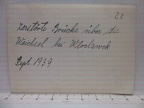 22
zerstörte Brücke über die
Weichsel bei Wloclawek
Sept. 1939